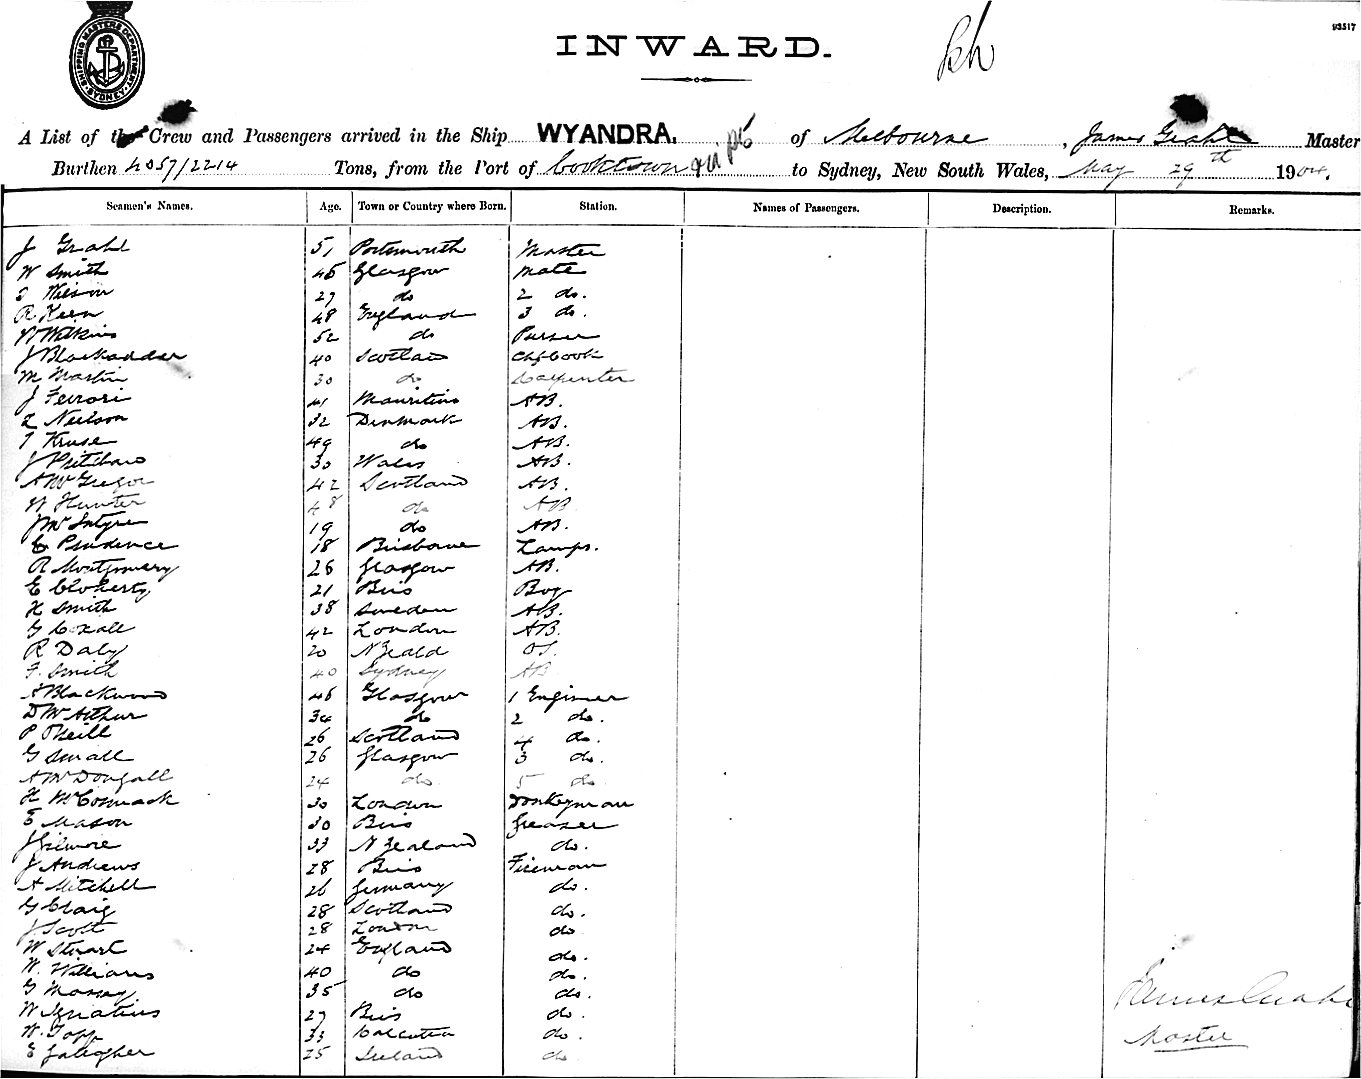 SHIPPING MASTERS DEPARTMENT SYDNEY
93517
INWARD.
A List of the Crew and Passengers arrived in the Ship WYANDRA, of Melbourne, James Grahl Master
Burthen 4057/2214 Tons, from the Port of Cooktown to Sydney, New South Wales, May 29th 1904.
Seamen's Names. Age. Town or Country where Born. Station. Names of Passengers. Description. Remarks.
J Grahl 51 Portsmouth Master
W Smith 45 Glasgow Mate
Wilson 27 do 2 do.
R Keen 48 England 3 do.
W Wilkins 52 do Purser
J Blackadder 40 Scotland Ch Cook
M Martin 30 do Carpenter
J Ferrari 41 Mauritius AB.
L Neilson 32 Denmark AB.
T Kruse 49 do AB.
J Pritchard 30 Wales AB.
A McGregor 42 Scotland AB.
W Hunter 48 do AB
J McIntyre 19 do AB.
C Prudence 18 Brisbane Lamps.
R Montgomery 26 Glasgow AB.
E Cloherty 21 Bris Boy
H Smith 38 Sweden AB.
G Coxall 42 London AB.
R Daly 20 N Zeald OS.
F. Smith 40 Sydney AB
A Blackwood 46 Glasgow 1 Engineer
D McArthur 34 do 2 do.
P O'Neill 26 Scotland 4 do.
G Small 26 Glasgow 3 do.
A McDougall 24 do 5 do
H McCormack 30 London Donkeyman
E Mason 30 Bris Greaser
J Gilmore 33 N Zealand do.
J Andrews 28 Bris Fireman
A Mitchell 26 Germany do.
G Craig 28 Scotland do.
J Scott 28 London do
W Stuart 24 England do.
W. Williams 40 do do.
G Massey 35 do do.
W Ignatius 27 Bris do.
W. Topp 33 Calcutta do.
E Gallegher 25 Ireland do
James Grahl
Master